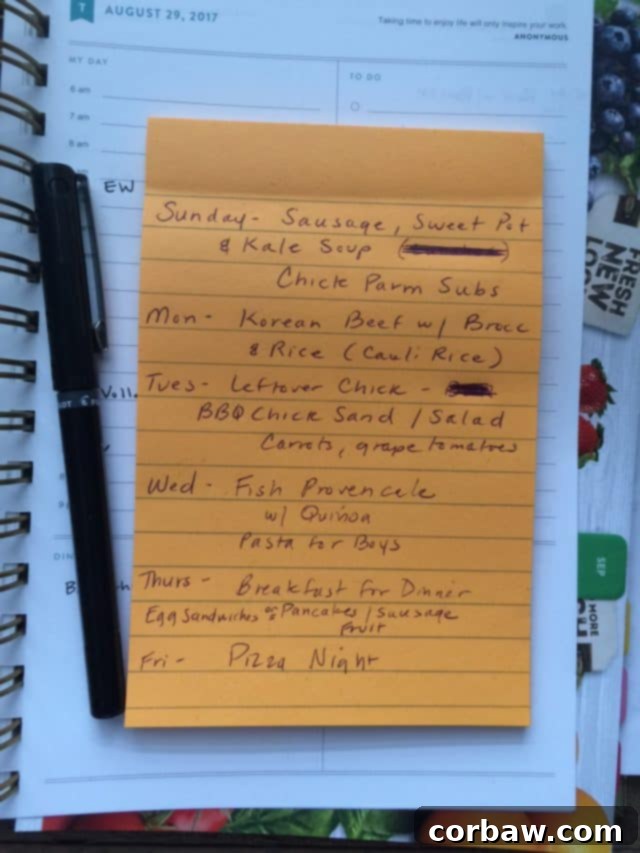 T
AUGUST 29, 2017
Taking time to enjoy life will only inspire your work.
ANONYMOUS
MY DAY
TO DO
6 am
7 am
8 am
EW
Sunday- Sausage, Sweet Pot
& Kale Soup
Chick Parm Subs
Mon- Korean Beef w/ Brocc
& Rice (Cauli Rice)
Tues- Leftover Chick -
BBQ Chick Sand / Salad
Carrots, grape tomatoes
Wed - Fish Provencale
w/ Quinoa
Pasta for Boys
Thurs - Breakfast for Dinner
Egg Sandwiches or Pancakes / Sausage
Fruit
Fri - Pizza Night
Voll
SEP
FRESH
NEW
MORE
corbaw.com